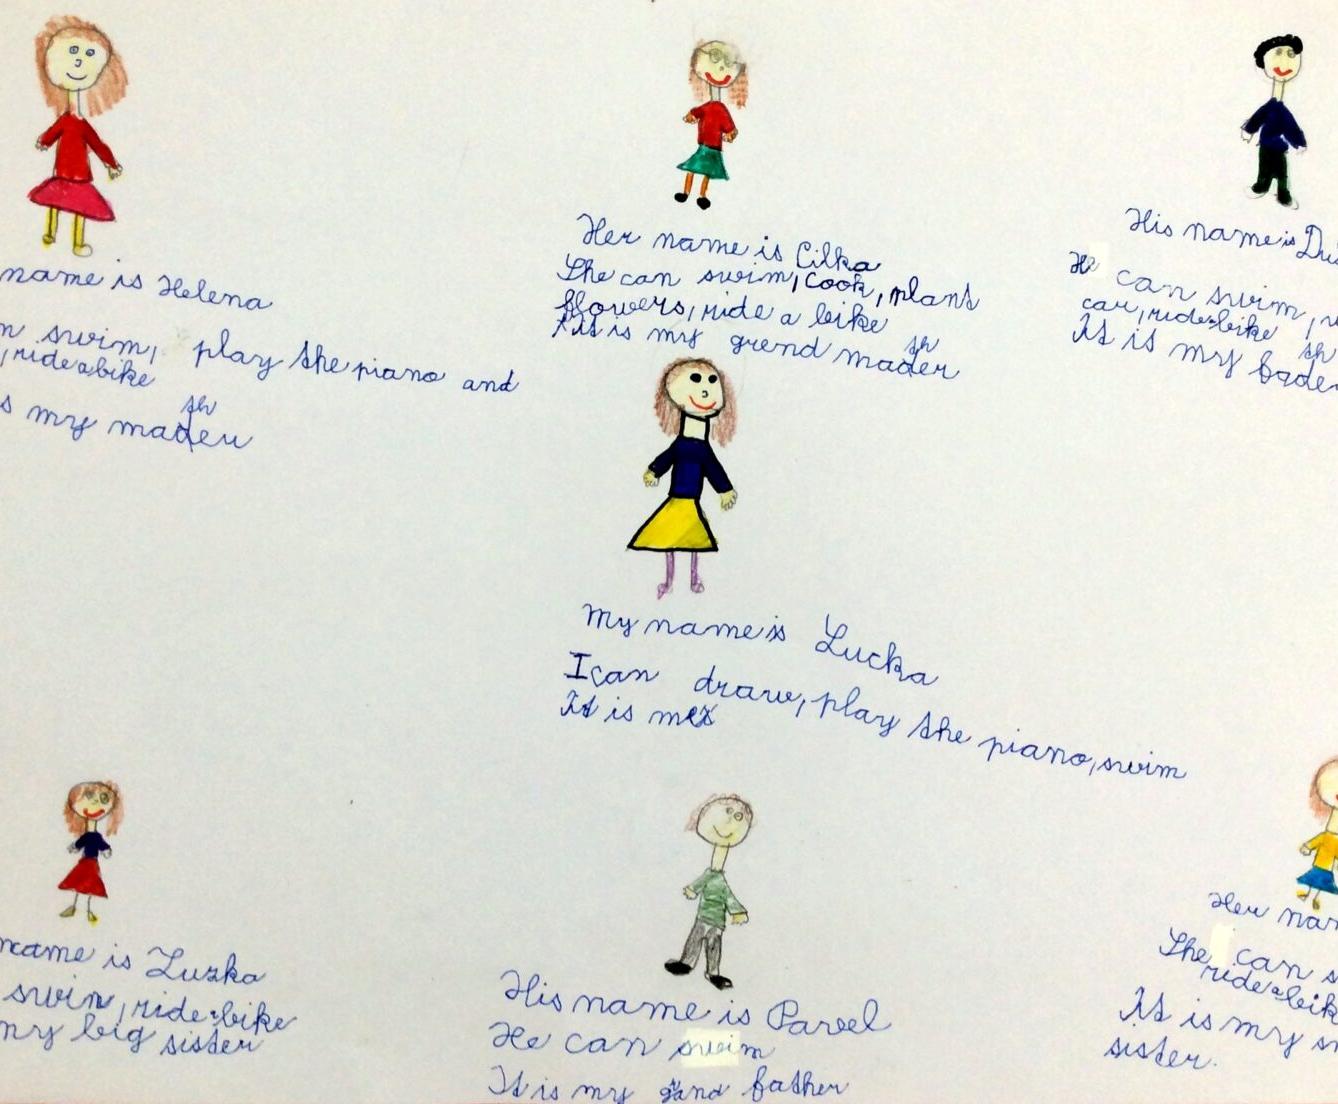 name is Helena
n swim, play the piano and
, ride a bike
s my mader
th
Her name is Cilka
She can swim, cook, plant
flowers, ride a bike
It is my grend mader
th
His name is Du
He can swim,
car, ride a bike
It is my bader
th
My name is Lucka
I can draw, play the piano, swim
It is me
name is Luzka
swim, ride a bike
my big sister
His name is Pavel
He can swim
It is my grand father
Her nam
She can s
ride a bik
It is my sm
sister.